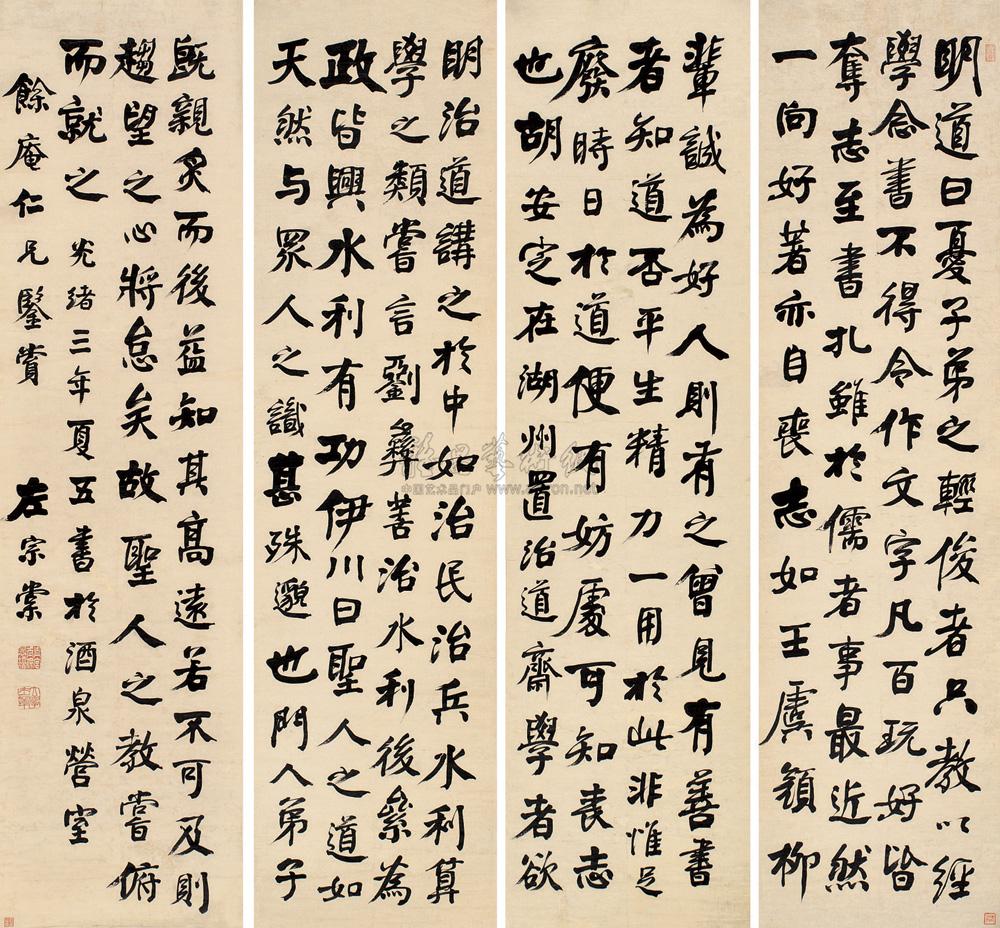 明道曰憂子弟之輕俊者只教以經
學念書不得令作文字凡百玩好皆
奪志至書札雖於儒者事最近然
一向好著亦自喪志如王虞顏柳
輩誠為好人則有之曾見有善書
者知道否平生精力一用於此非惟足
廢時日於道便有妨處可知喪志
也胡安定在湖州置治道齋學者欲
明治道講之於中如治民治兵水利算
學之類嘗言劉彝善治水利後纍為
政皆興水利有功伊川曰聖人之道如
天然与眾人之識甚殊邈也門人弟子
既親炙而後益知其高遠若不可及則
趨望之心將怠矣故聖人之教嘗俯
而就之 光緒三年夏五書於酒泉營室
餘庵仁兄鑒賞 左宗棠